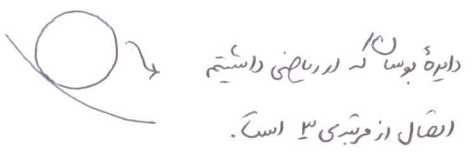 دایرهٔ بوسان که در ریاضی داشتیم
اتصال از مرتبه‌ی ۳ است.